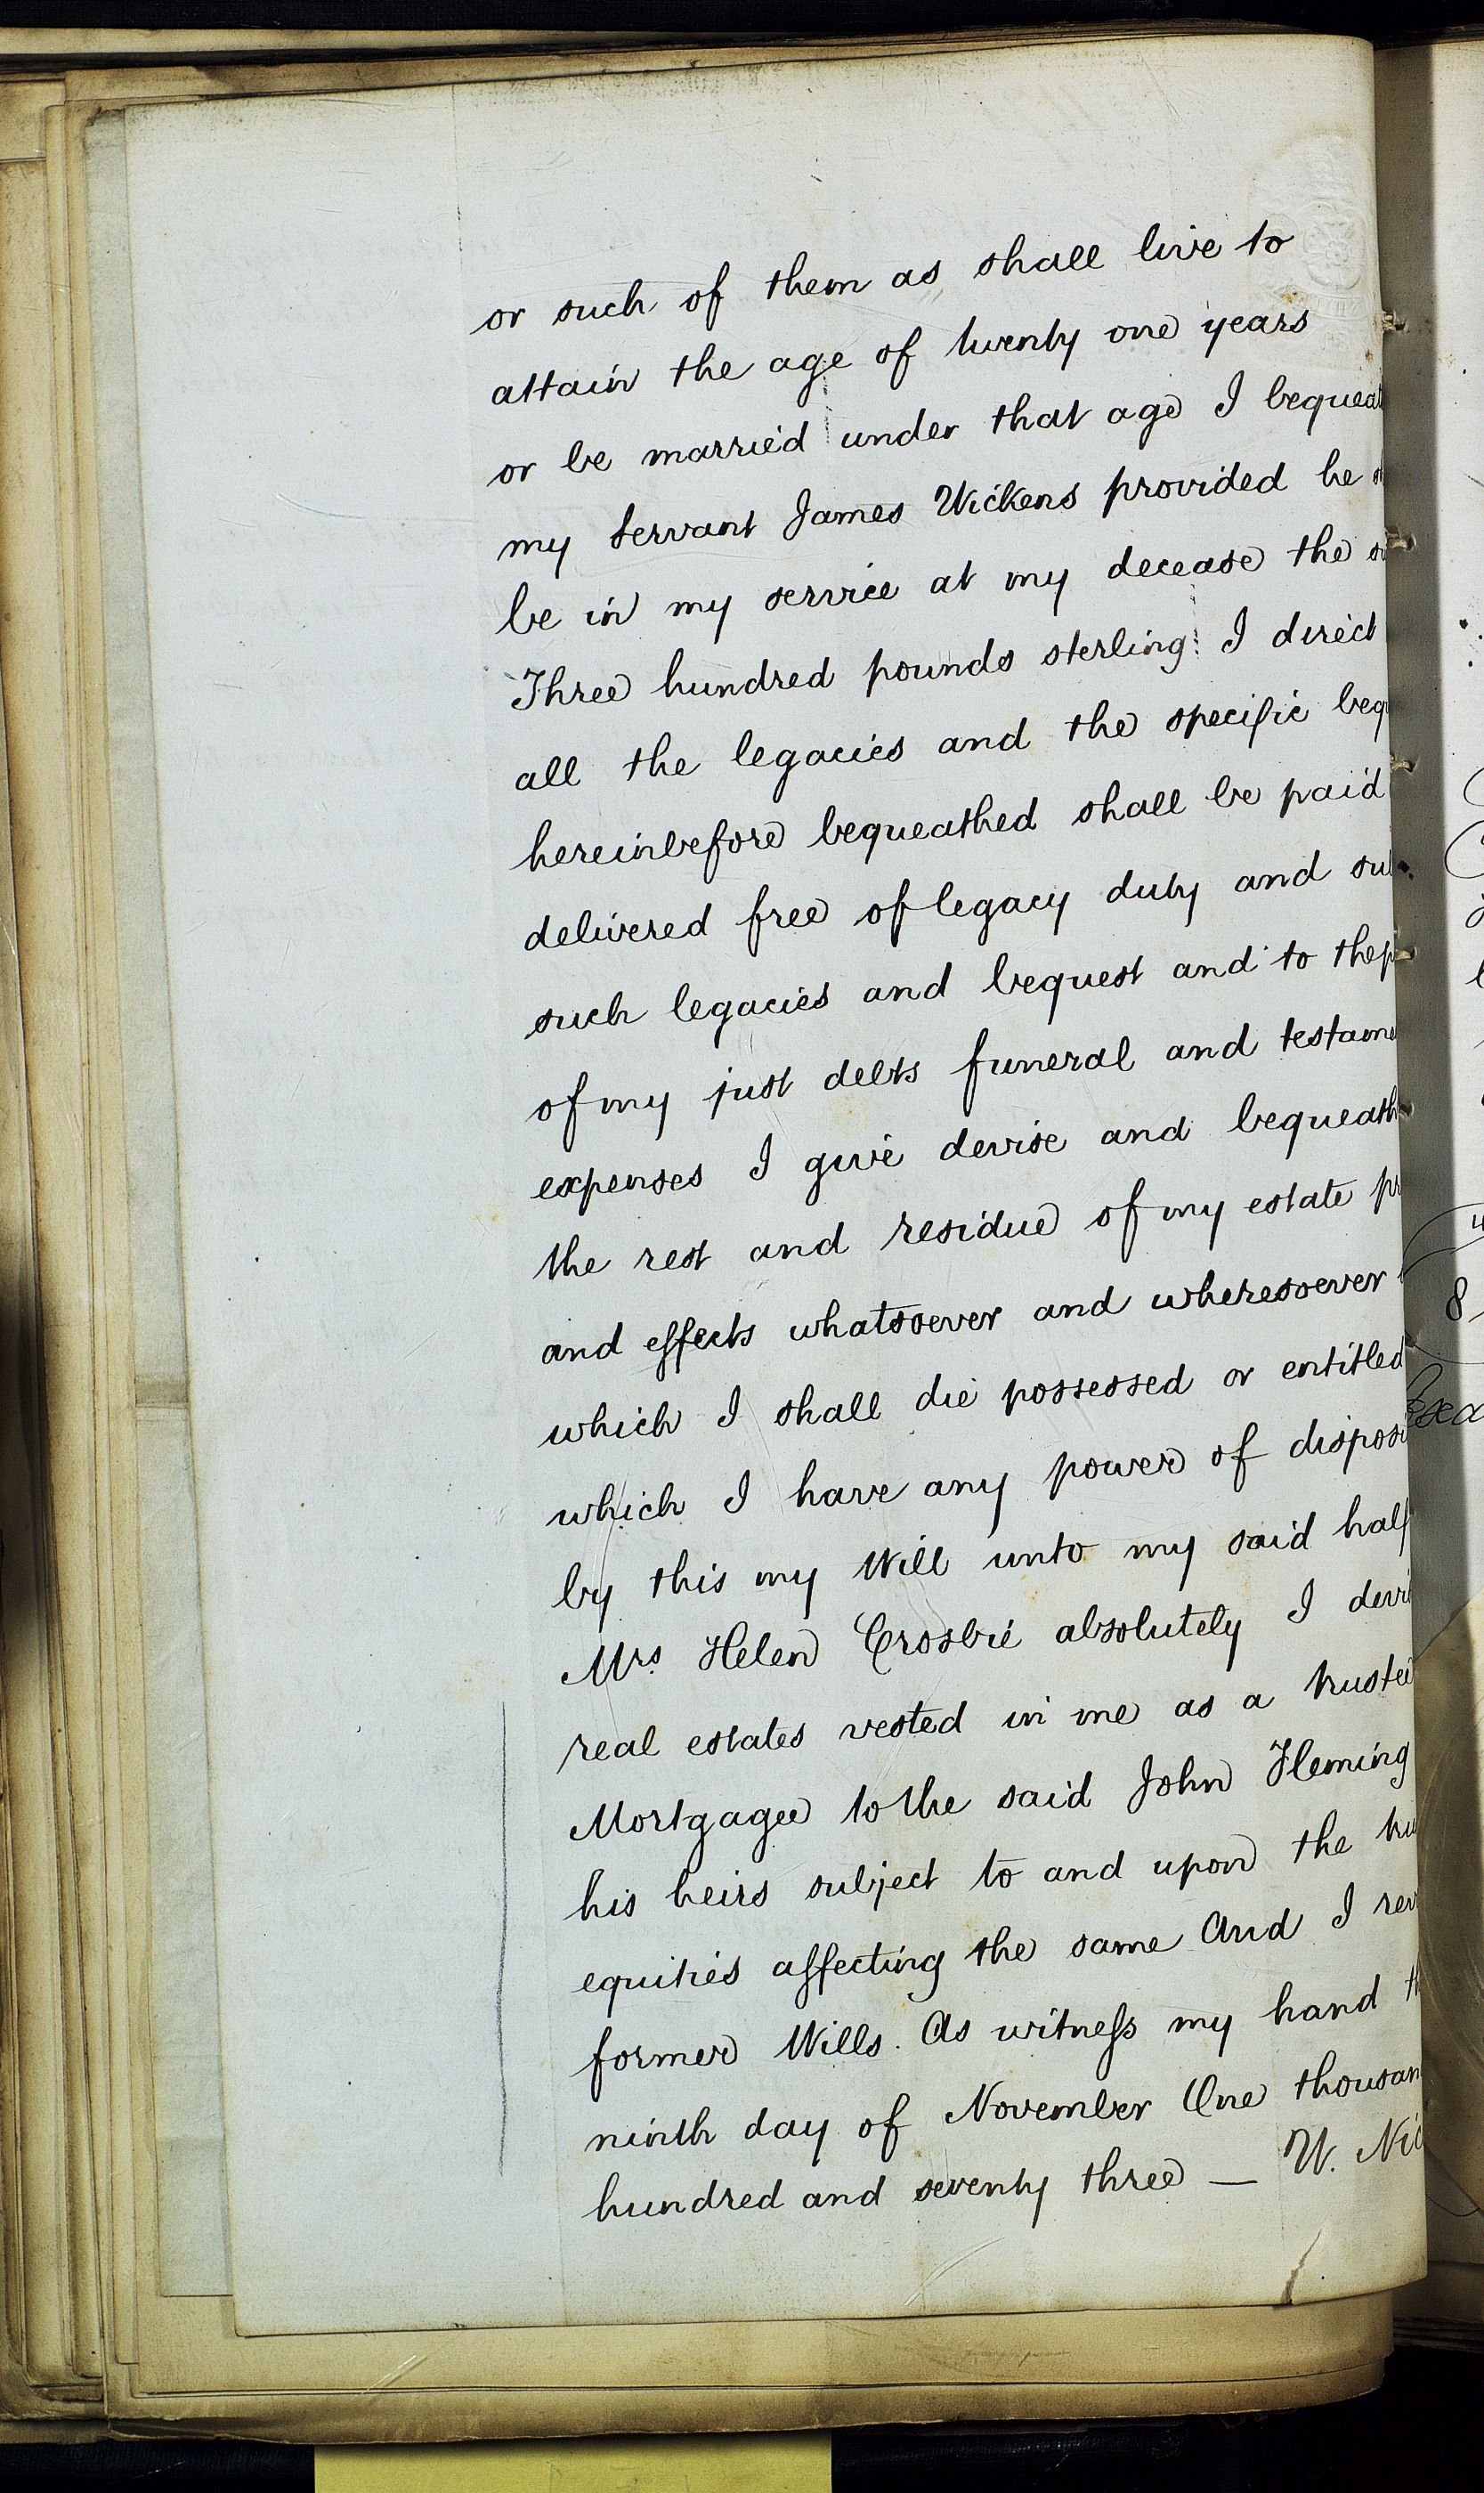 or such of them as shall live to
attain the age of twenty one years
or be married under that age I bequeat
my Servant James Wickens provided he
be in my service at my decease the
Three hundred pounds sterling. I direct
all the legacies and the specific beq
hereinbefore bequeathed shall be paid
delivered free of legacy duty and
such legacies and bequest and to the
of my just debts funeral and testame
expenses I give devise and bequeath
the rest and residue of my estate
and effects whatsoever and wheresoever
which I shall die possessed or entitled
which I have any power of disposi
by this my Will unto my said half
Mrs. Helen Crosbie absolutely I devi
real estates vested in me as a trustee
Mortgagee to the said John Fleming
his heirs subject to and upon the tru
equities affecting the same And I rev
former Wills. As witness my hand th
ninth day of November One thousan
hundred and seventy three — W. Nic
8